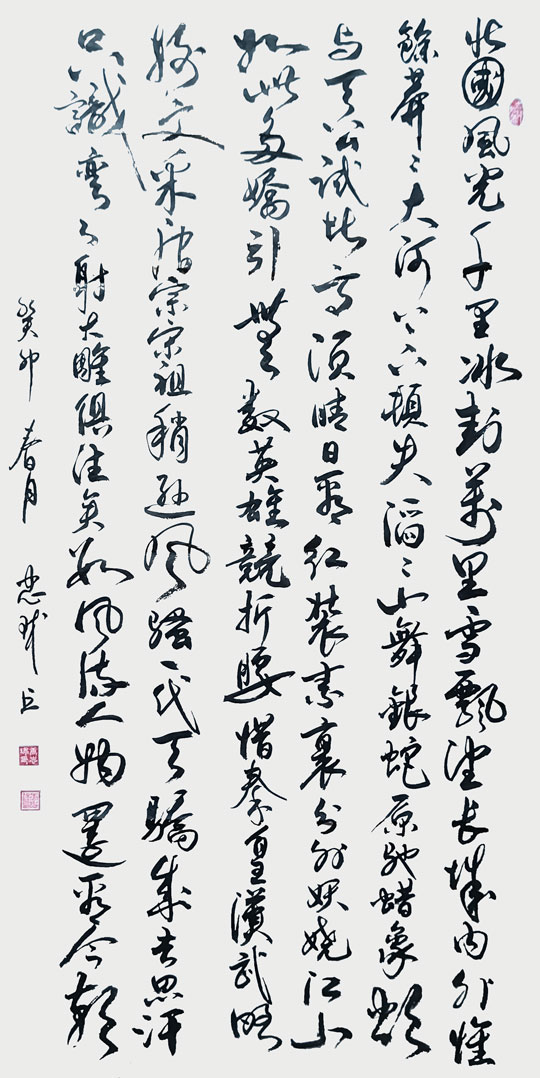 北國風光千里冰封萬里雪飄望長城內外惟
餘莽〻大河上下頓失滔〻山舞銀蛇原馳蜡象欲
与天公試比高須晴日看紅裝素裹分外妖嬈江山
如此多嬌引無數英雄競折腰惜秦皇漢武略
輸文采唐宗宋祖稍遜风騷一代天驕成吉思汗
只識彎弓射大雕俱往矣數风流人物還看今朝
癸卯春月 忠